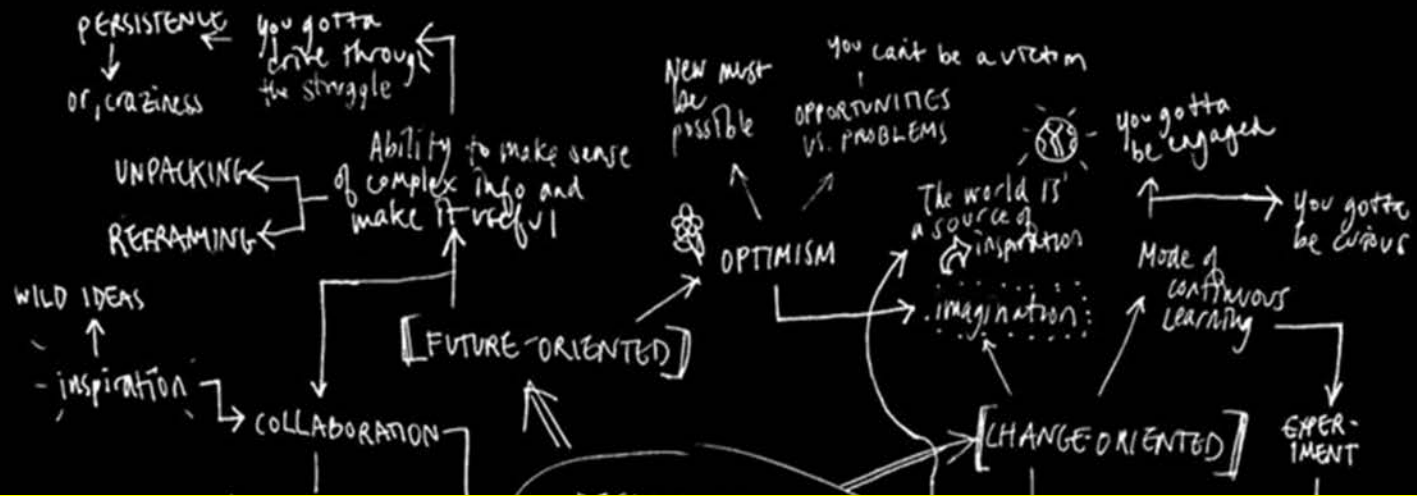 PERSISTENCE
or, craziness
you gotta
drive through
the struggle
Ability to make sense
of complex info and
make it useful
UNPACKING
REFRAMING
WILD IDEAS
inspiration
COLLABORATION
[FUTURE-ORIENTED]
New must
be
possible
you can't be a victim
OPPORTUNITIES
VS. PROBLEMS
OPTIMISM
The world is
a source of
inspiration
imagination
you gotta
be engaged
you gotta
be curious
Mode of
continuous
learning
[CHANGE-ORIENTED]
EXPER-
IMENT